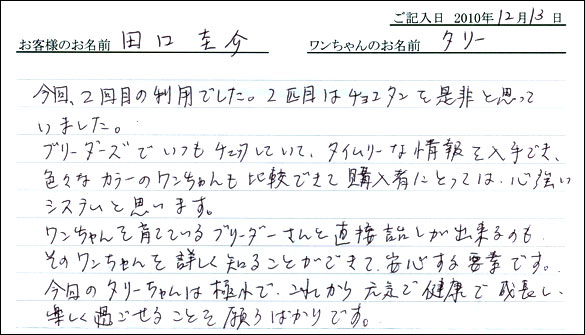 ご記入日 2010年12月13日
お客様のお名前 田口 圭介 ワンちゃんのお名前 タリー
今回、2回目の利用でした。2匹目はチョコタンを是非と思って
いました。
ブリーダーズでいつもチェックしていて、タイムリーな情報を入手でき、
色々なカラーのワンちゃんも比較できて購入者にとっては、心強い
システムと思います。
ワンちゃんを育てているブリーダーさんと直接話しが出来るのも
そのワンちゃんを詳しく知ることができて、安心する要素です。
今回のタリーちゃんは極小で、これから元気で健康で成長し、
楽しく過ごせることを願うばかりです。